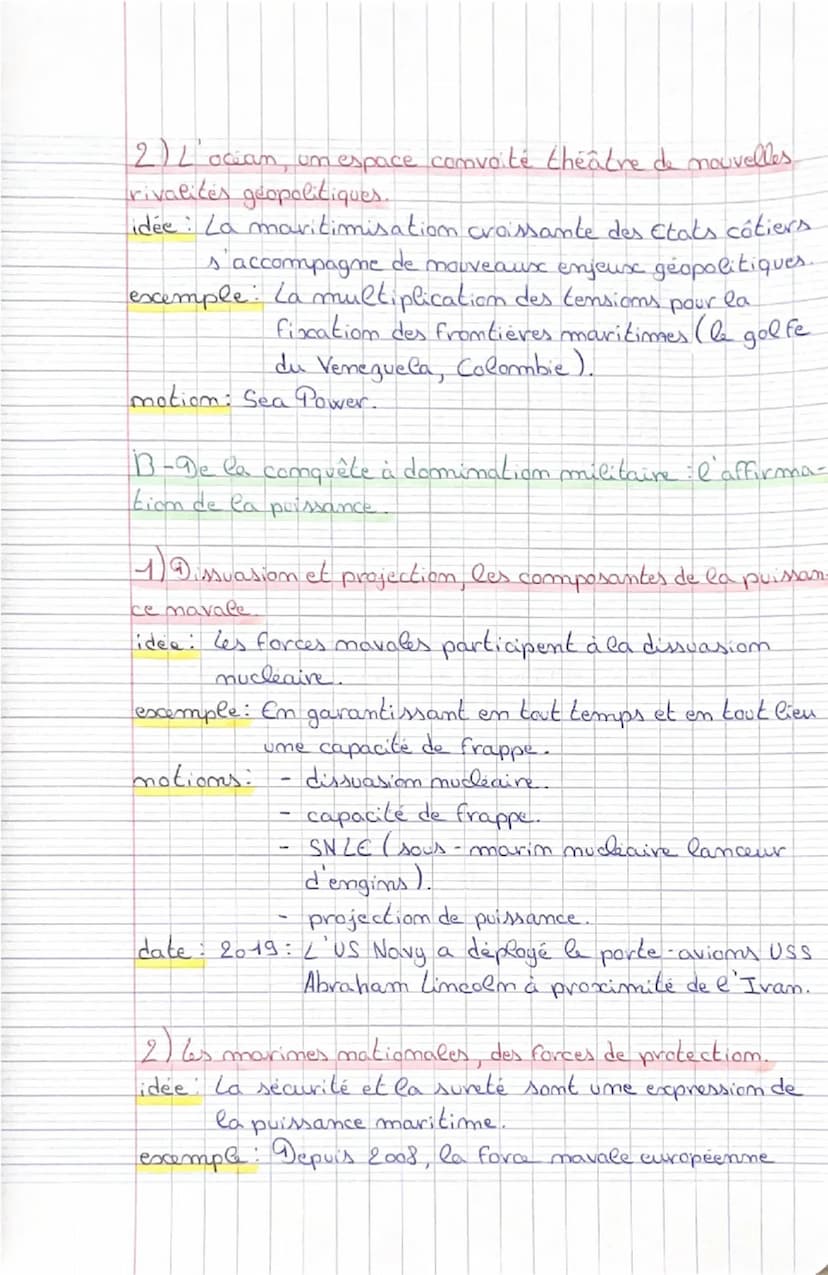 2) L'océan, un espace convoité théâtre de nouvelles
rivalités géopolitiques.
idée : La maritimisation croissante des Etats côtiers
s'accompagne de nouveaux enjeux géopolitiques.
exemple : La multiplication des tensions pour la
fixation des frontières maritimes (le golfe
du Venezuela, Colombie).
notion : Sea Power.
B - De la conquête à domination militaire : l'affirma-
tion de la puissance.
1) Dissuasion et projection, les composantes de la puissan-
ce navale.
idée : Les forces navales participent à la dissuasion
nucléaire.
exemple : En garantissant en tout temps et en tout lieu
une capacité de frappe.
notions : - dissuasion nucléaire.
- capacité de frappe.
- SNLE (sous-marin nucléaire lanceur
d'engins).
- projection de puissance.
date : 2019 : L'US Navy a déployé le porte-avions USS
Abraham Lincoln à proximité de l'Iran.
2) Les marines nationales, des forces de protection.
idée : La sécurité et la sureté sont une expression de
la puissance maritime.
exemple : Depuis 2008, la force navale européenne